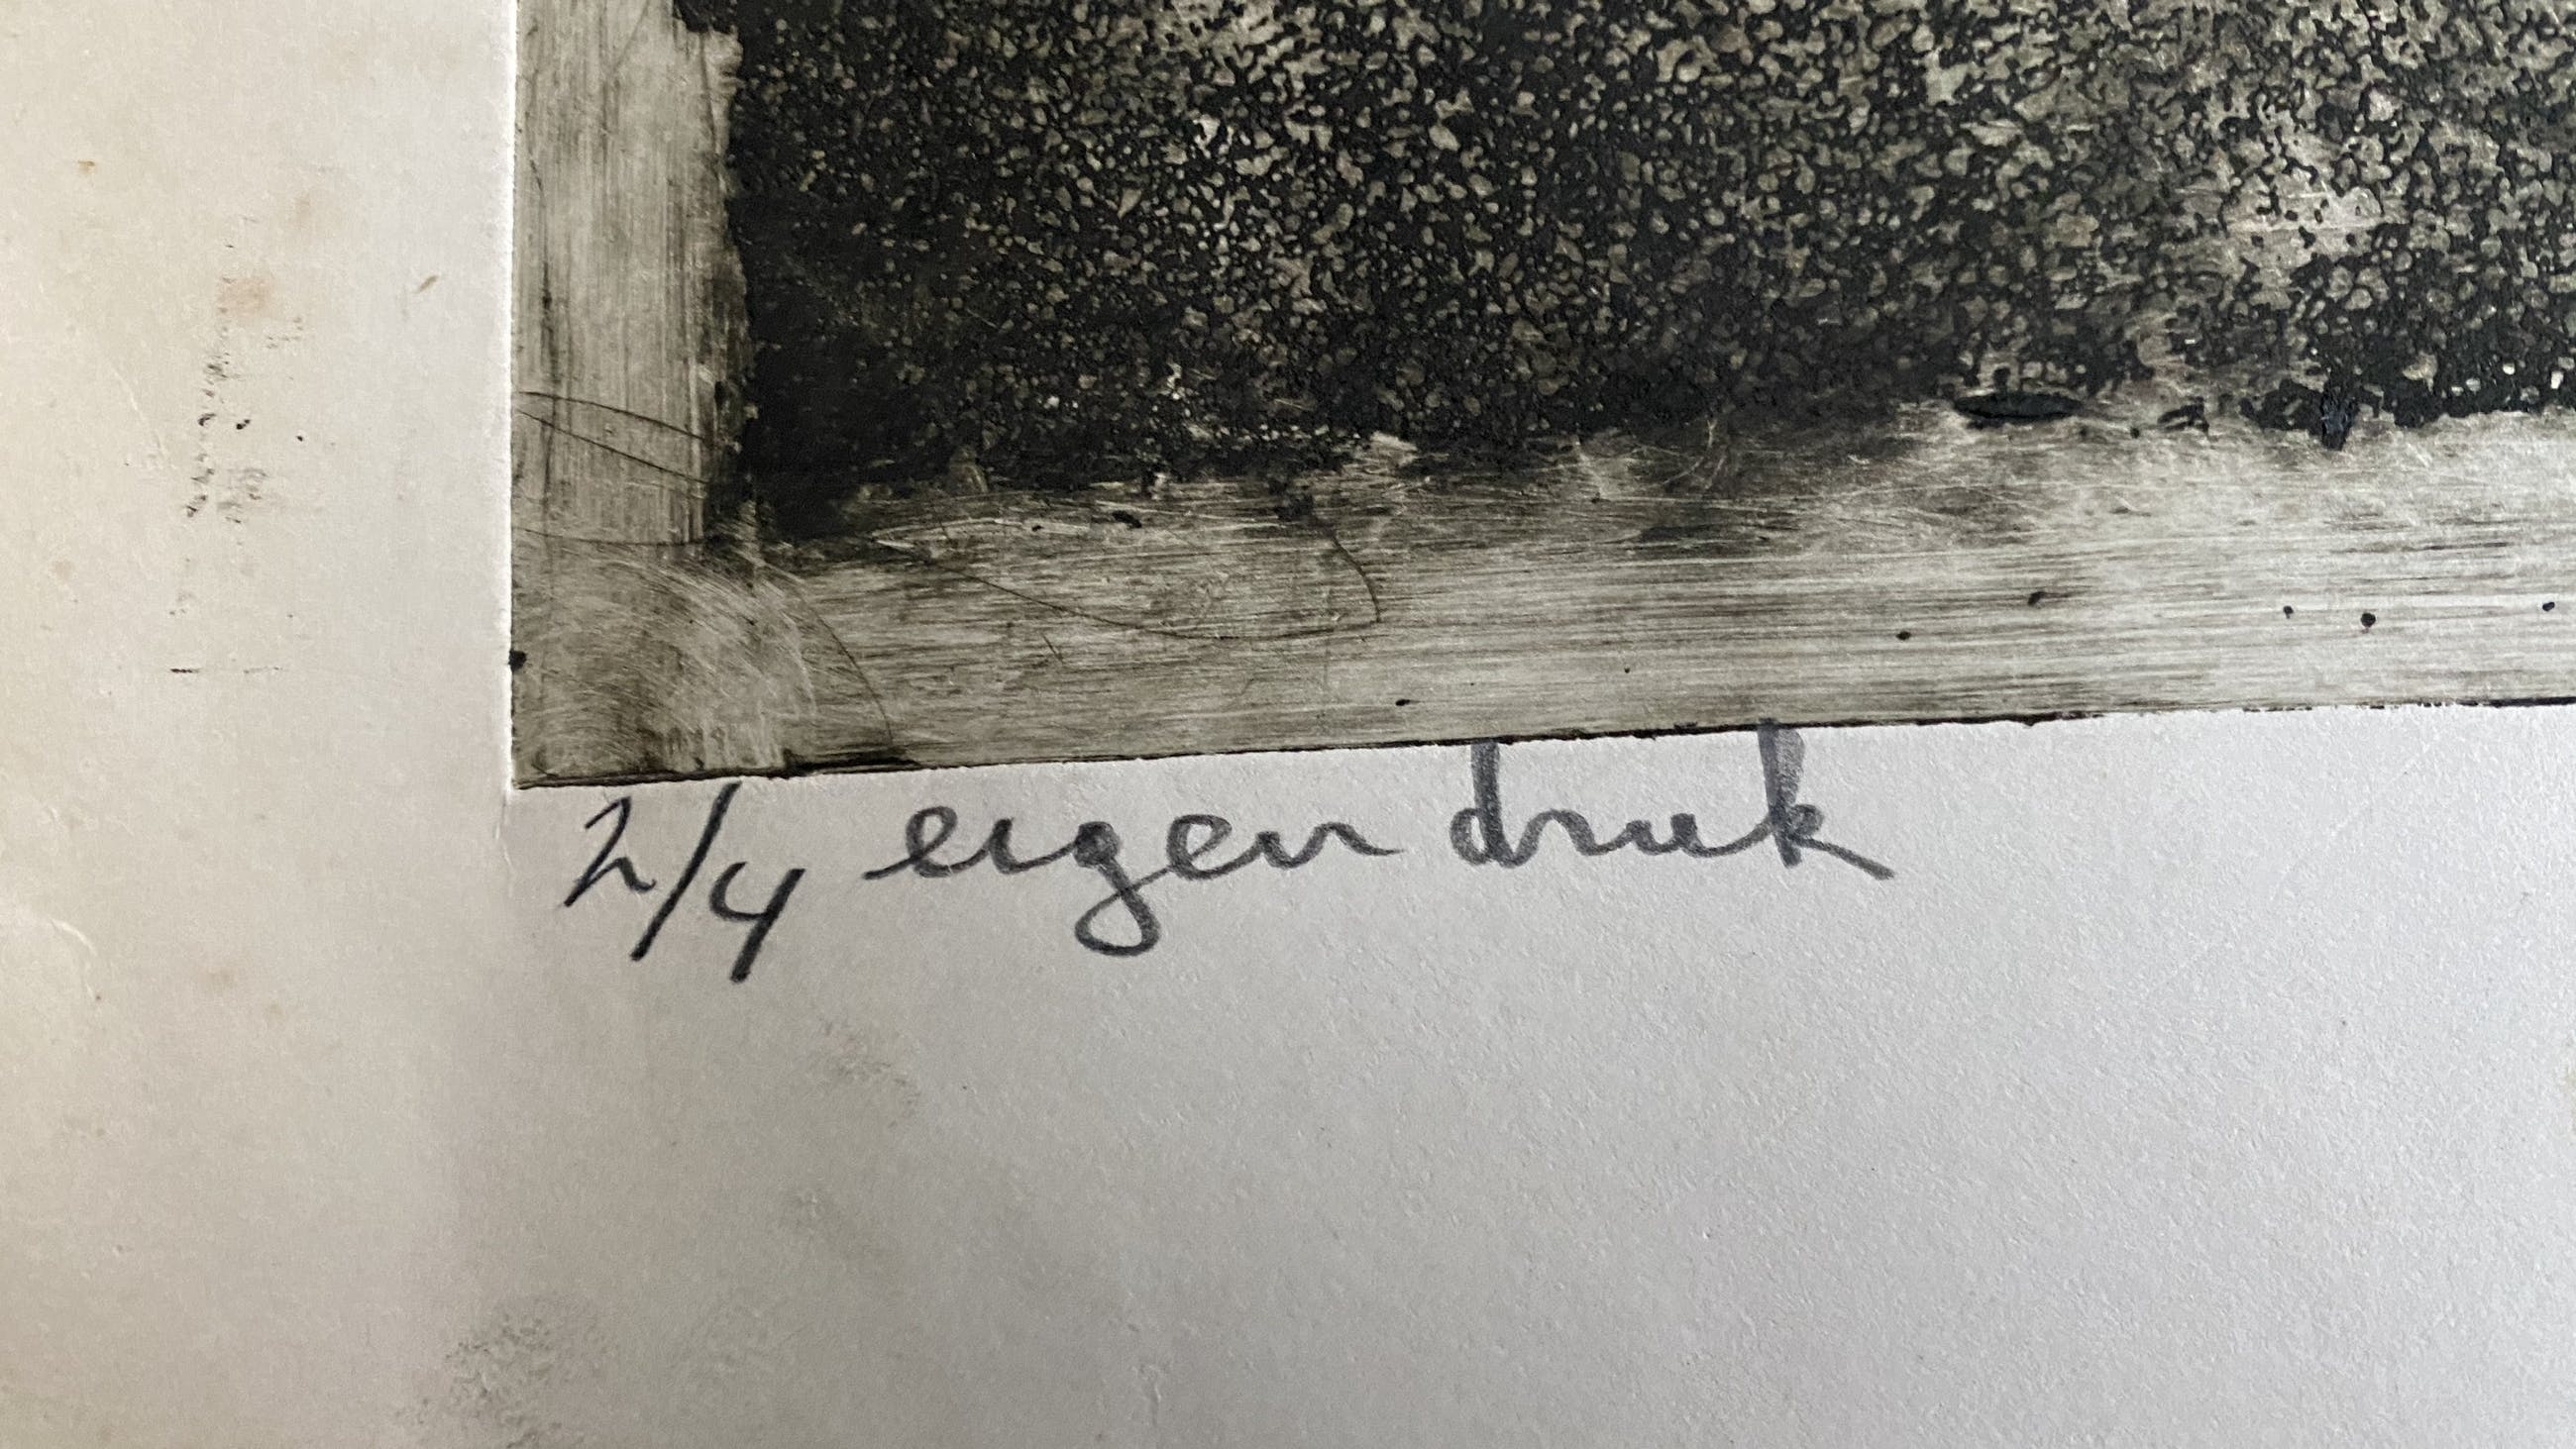 2/4 eigen druk